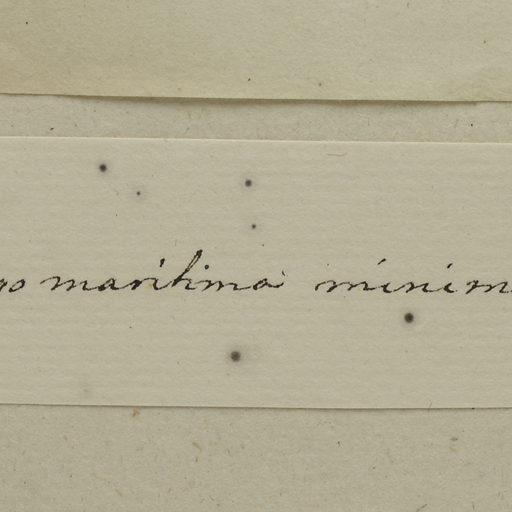 go maritima minim